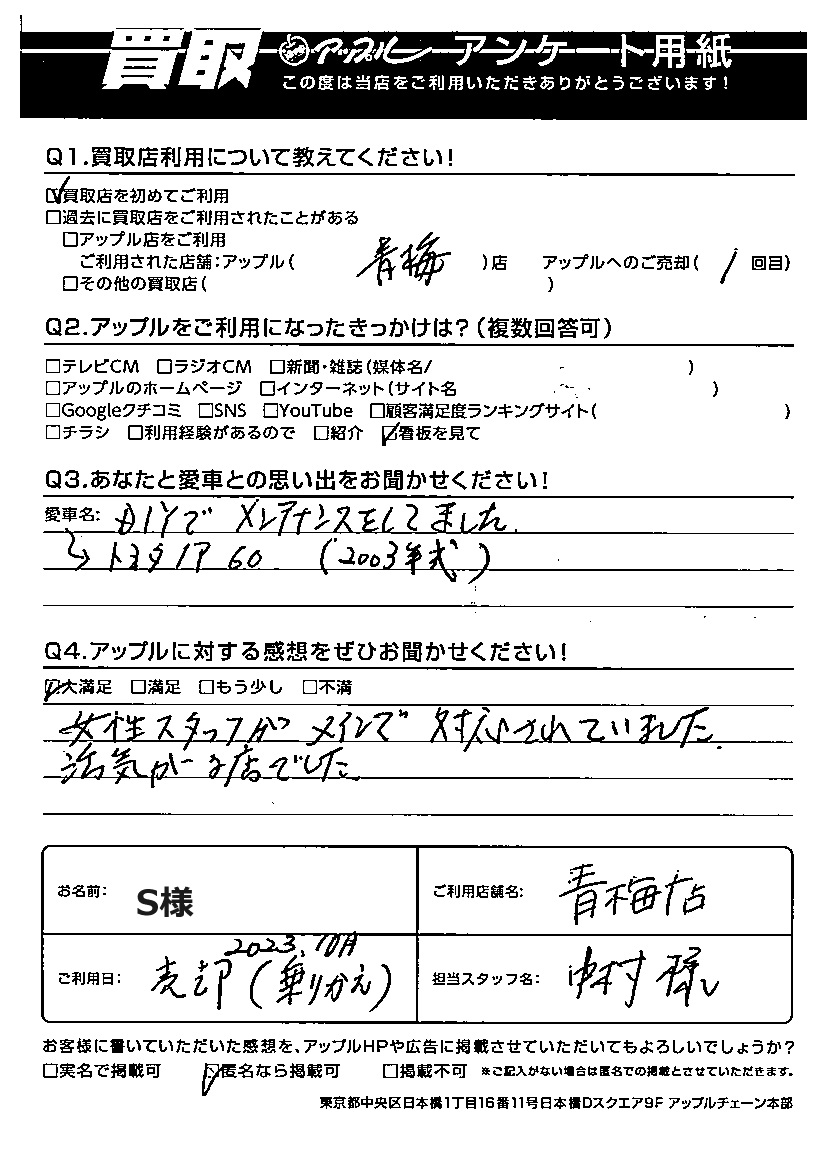 買取 アップル アンケート用紙
この度は当店をご利用いただきありがとうございます!
Q1.買取店利用について教えてください!
☑買取店を初めてご利用
□過去に買取店をご利用されたことがある
□アップル店をご利用
ご利用された店舗:アップル( 青梅 )店 アップルへのご売却( 1 回目)
□その他の買取店( )
Q2.アップルをご利用になったきっかけは?(複数回答可)
□テレビCM □ラジオCM □新聞・雑誌(媒体名/ )
□アップルのホームページ □インターネット(サイト名 )
□Googleクチコミ □SNS □YouTube □顧客満足度ランキングサイト( )
□チラシ □利用経験があるので □紹介 ☑看板を見て
Q3.あなたと愛車との思い出をお聞かせください!
愛車名: DIYで メンテナンスをしてました.
↳ トヨタノア 60 (2003年式)
Q4.アップルに対する感想をぜひお聞かせください!
☑大満足 □満足 □もう少し □不満
女性スタッフがメインで 対応されていました.
活気がある店でした.
お名前: S様 ご利用店舗名: 青梅店
ご利用日: 2023.10月 売却(乗りかえ) 担当スタッフ名: 中村 様
お客様に書いていただいた感想を、アップルHPや広告に掲載させていただいてもよろしいでしょうか?
□実名で掲載可 ☑匿名なら掲載可 □掲載不可 ※ご記入がない場合は匿名での掲載とさせていただきます。
東京都中央区日本橋1丁目16番11号日本橋Dスクエア9F アップルチェーン本部